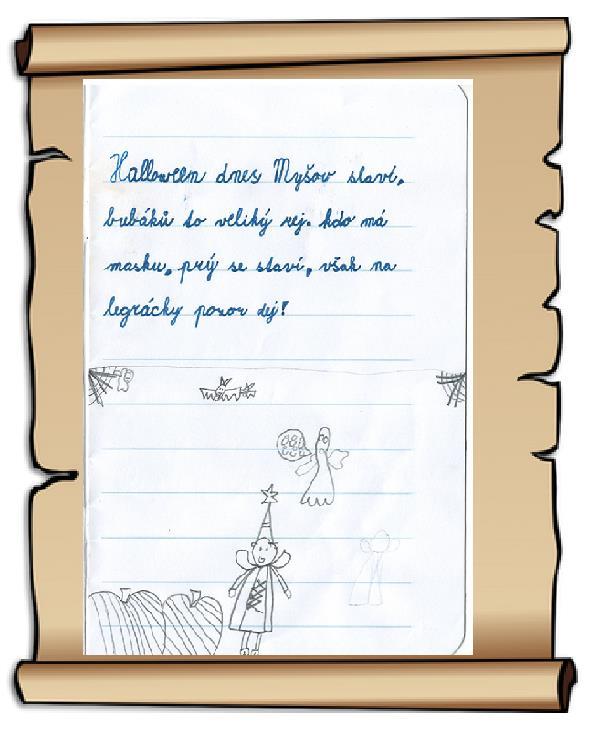 Halloween dnes Myšov slaví,
bubáků to veliký rej. kdo má
masku, prý se slaví, však na
legrácky pozor dej!